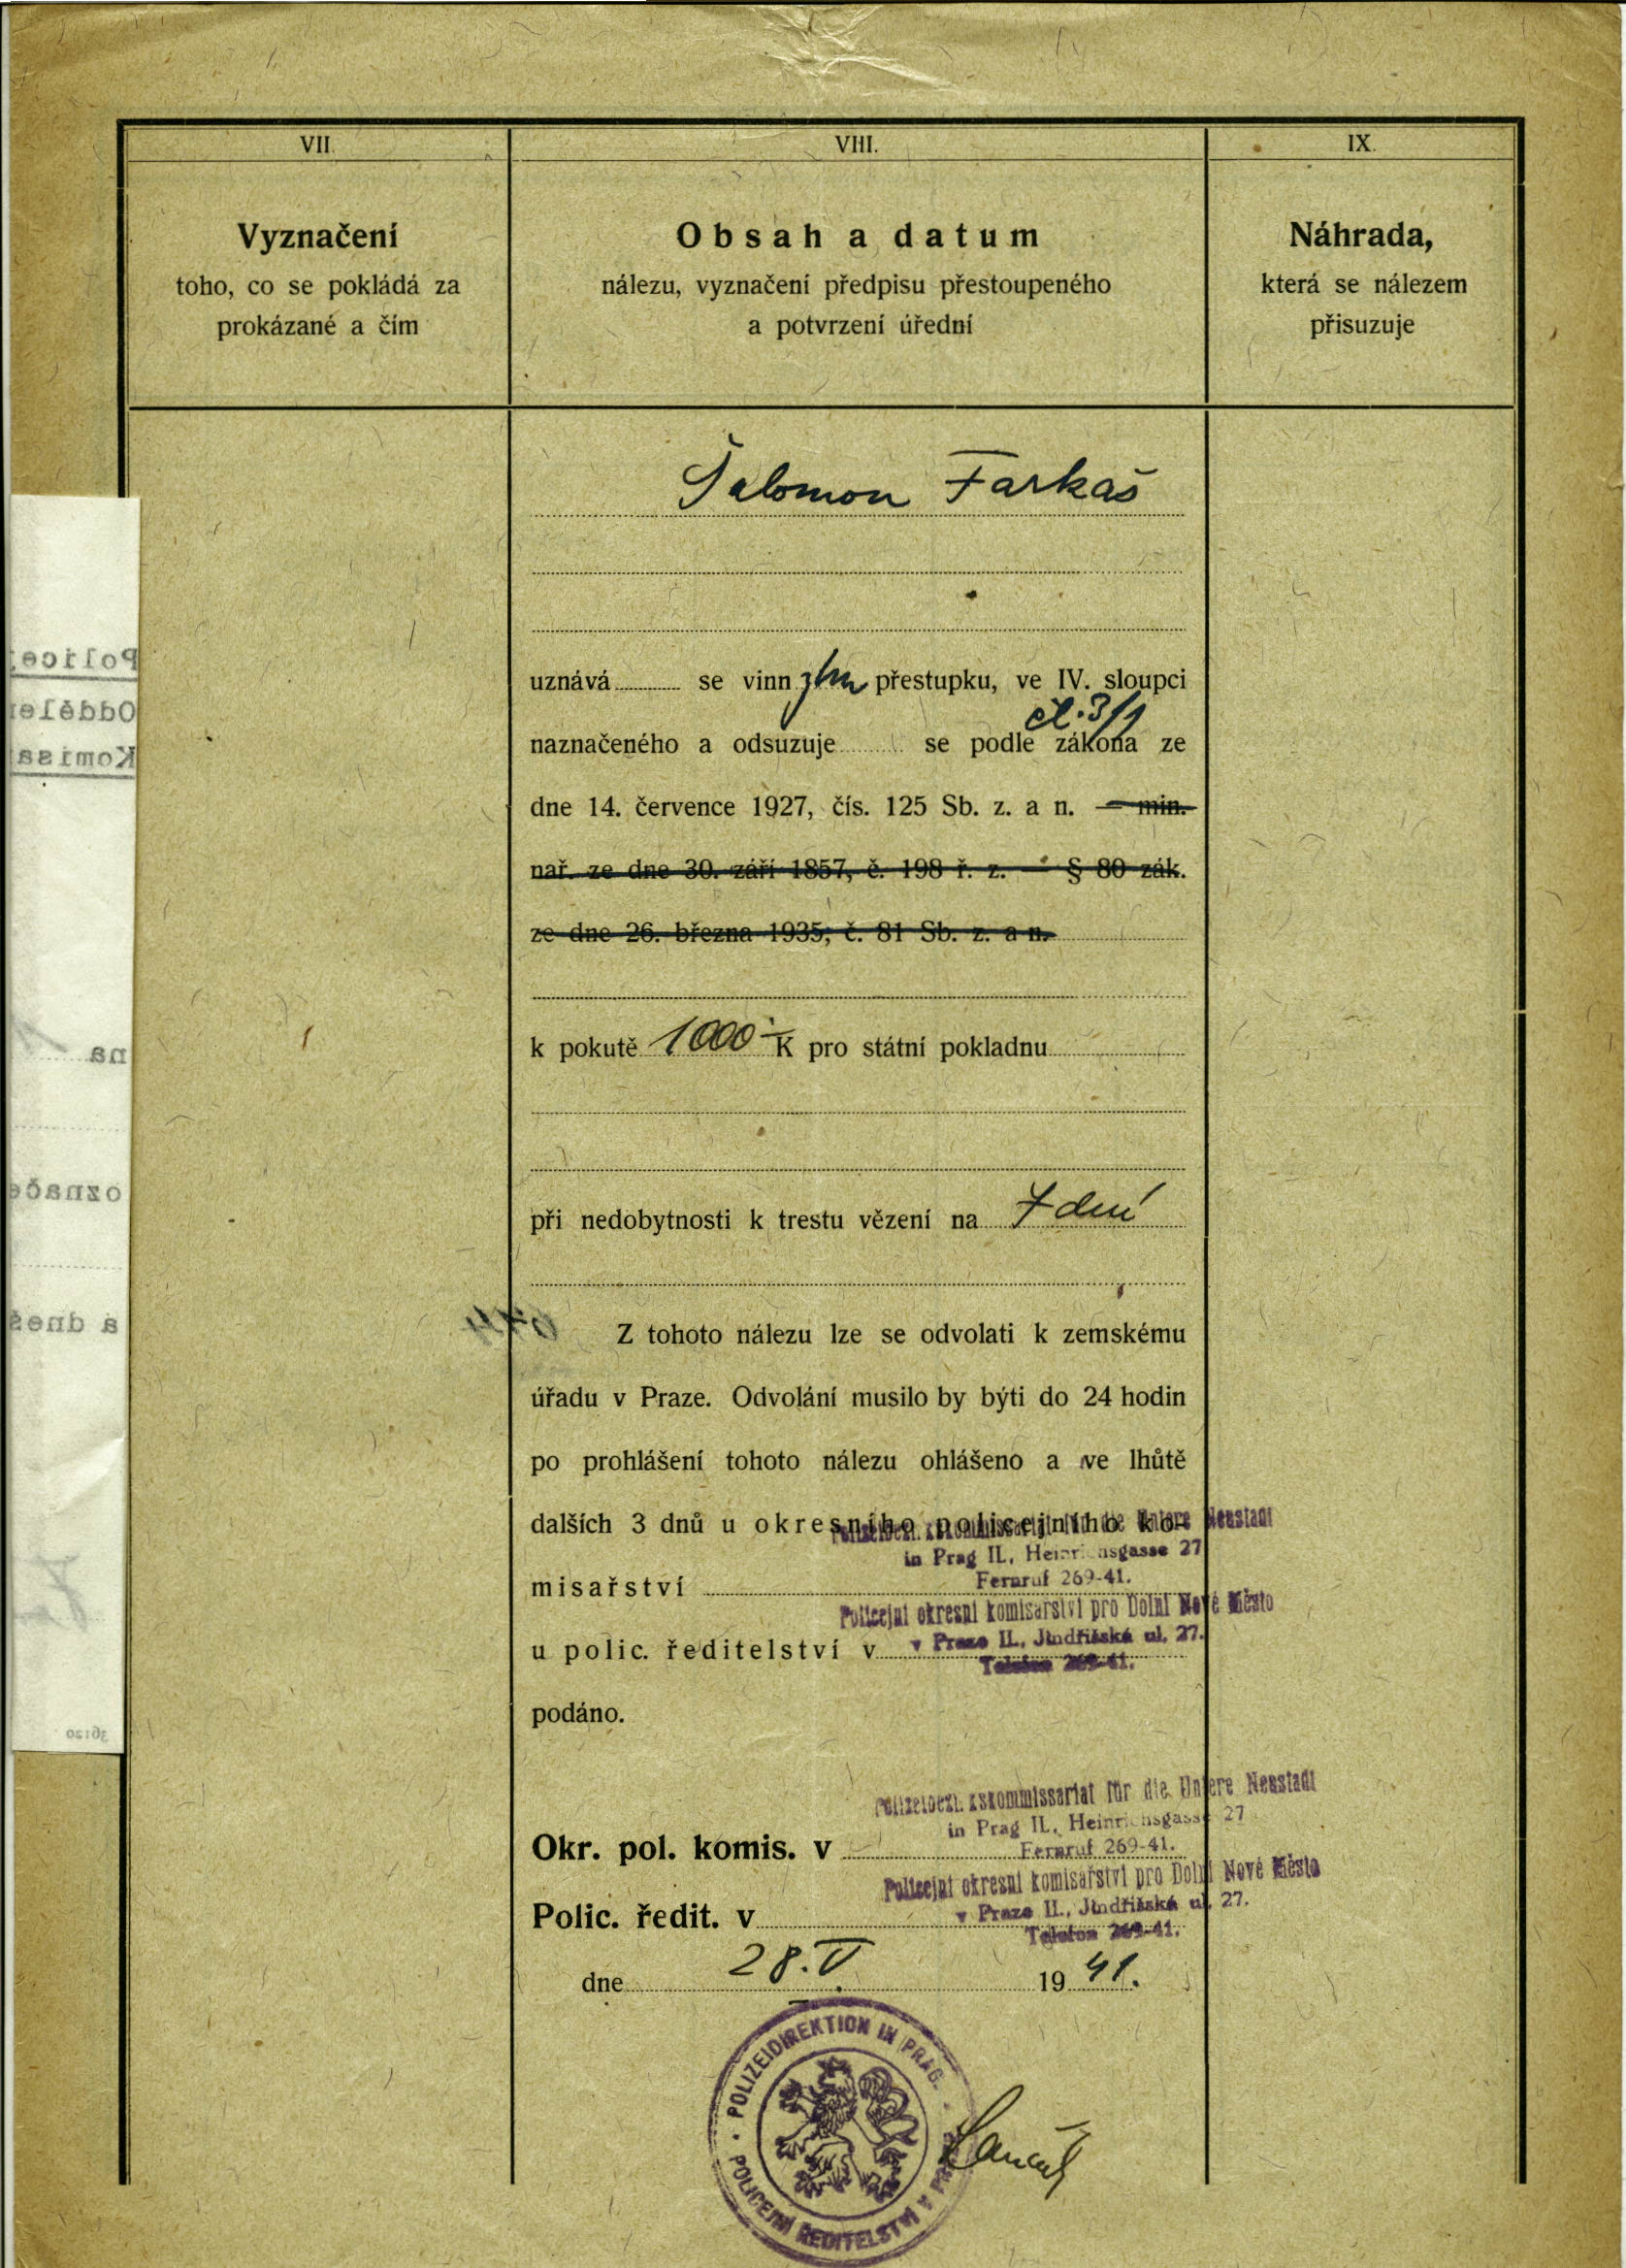 VII.
Vyznačení
toho, co se pokládá za
prokázané a čím
VIII.
Obsah a datum
nálezu, vyznačení předpisu přestoupeného
a potvrzení úřední
IX.
Náhrada,
která se nálezem
přisuzuje
Šalomon Farkaš
uznává se vinn ým přestupku, ve IV. sloupci
čl. 3/1
naznačeného a odsuzuje se podle zákona ze
dne 14. července 1927, čís. 125 Sb. z. a n. — min.
nař. ze dne 30. září 1857, č. 198 ř. z. — § 80 zák.
ze dne 26. března 1935, č. 81 Sb. z. a n.
k pokutě 1000 K pro státní pokladnu
při nedobytnosti k trestu vězení na 7 dní
Z tohoto nálezu lze se odvolati k zemskému
úřadu v Praze. Odvolání musilo by býti do 24 hodin
po prohlášení tohoto nálezu ohlášeno a ve lhůtě
dalších 3 dnů u okresního policejního ko-
Untere Neustadt
in Prag II., Heinrichsgasse 27
Fernruf 269-41.
misařství
Policejní okresní komisařství pro Dolní Nové Město
v Praze II., Jindřišská ul. 27.
Telefon 269-41.
u polic. ředitelství v
podáno.
Polizeibezirkskommissariat für die Untere Neustadt
in Prag II., Heinrichsgasse 27
Fernruf 269-41.
Okr. pol. komis. v
Policejní okresní komisařství pro Dolní Nové Město
v Praze II., Jindřišská ul. 27.
Telefon 269-41.
Polic. ředit. v
dne 28.V. 19 41.
POLIZEIDIREKTION IN PRAG.
POLICEJNÍ ŘEDITELSTVÍ V PRAZE
Police
Oddělen
Komisa
na
označe
a dneš
36120